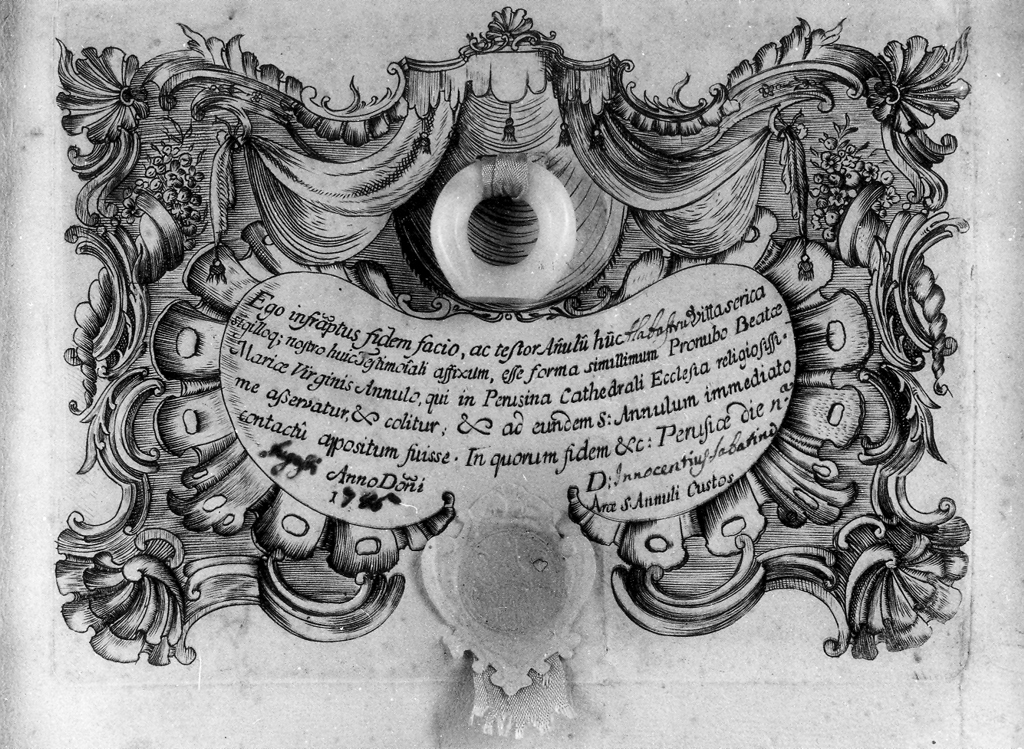 Ego infrãptus fidem facio, ac testor Añulũ hũc Alabastrũ Vitta serica
sigilloq; nostro huic Testimoniali affixum, esse forma simillimum Pronubo Beatæ
Mariæ Virginis Annulo, qui in Perusina Cathedrali Ecclesia religiosissi-
me asservatur, & colitur; & ad eundem S: Annulum immediato
contactũ appositum fuisse. In quorum fidem &c: Perusiæ die n:
Anno Doñi
1
D: Innocentius Sabatini
Aræ S. Annuli Custos